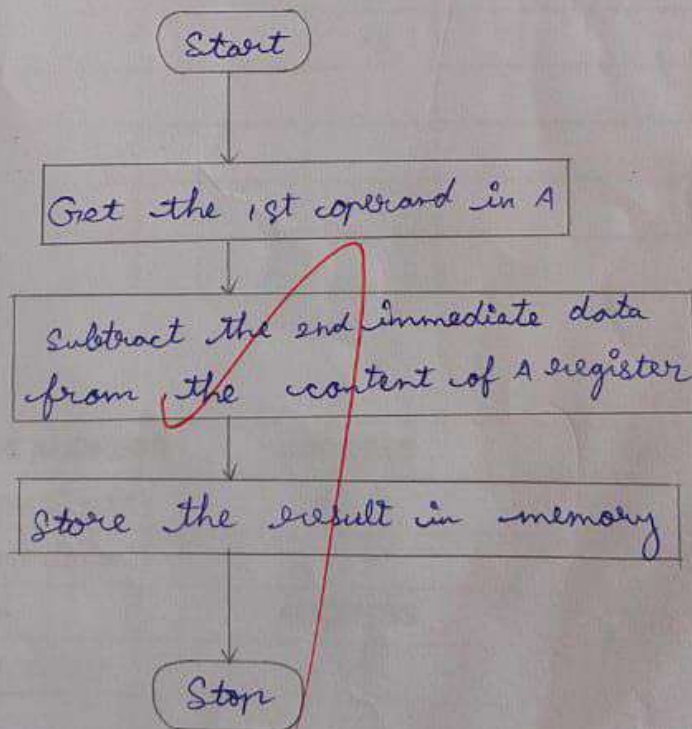 Start
Get the 1st operand in A
Subtract the 2nd immediate data
from the content of A register
Store the result in memory
Stop